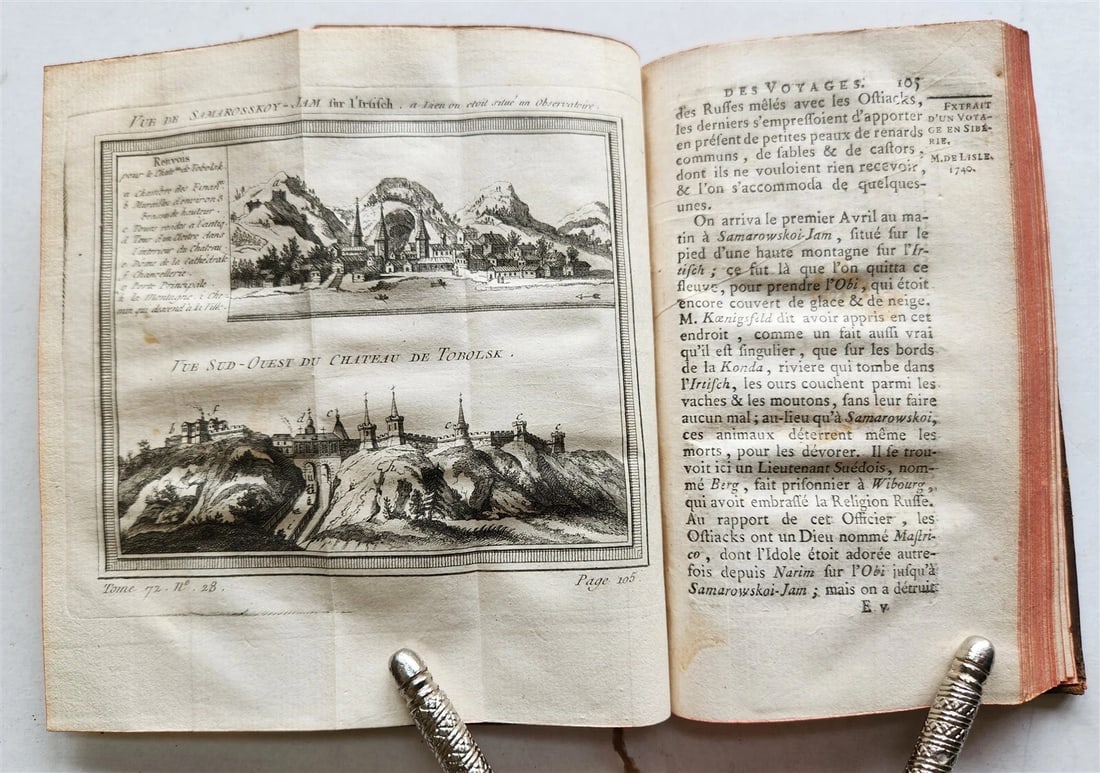 VUE DE SAMAROSSKOY-JAM sur l'Irtisch. a Lieu ou etoit situé un Observatoire.
RENVOIS
pour le Chatau de Tobolsk.
a Chambre des Finan
b Murailles d'environ 8
Brasses de hauteur.
c Tours rondes à l'antiq
d Tour d'un Cloitre dans
l'interieur du Chateau
e Dôme de la Cathedrale
f Chancellerie.
g Porte Principale.
h la Montagne i Che-
min qui descend à la Ville.
VUE SUD-OUEST DU CHATEAU DE TOBOLSK.
Tome 72. N.º 28.
Page 105
DES VOYAGES. 105
des Russes mêlés avec les Ostiacks,
les derniers s'empressoient d'apporter
en présent de petites peaux de renards
communs, de sables & de castors,
dont ils ne vouloient rien recevoir,
& l'on s'accommoda de quelques-
unes.
On arriva le premier Avril au ma-
tin à Samarowskoi-Jam, situé sur le
pied d'une haute montagne sur l'Ir-
tisch; ce fut là que l'on quitta ce
fleuve, pour prendre l'Obi, qui étoit
encore couvert de glace & de neige.
M. Kœnigsfeld dit avoir appris en cet
endroit, comme un fait aussi vrai
qu'il est singulier, que sur les bords
de la Konda, riviere qui tombe dans
l'Irtisch, les ours couchent parmi les
vaches & les moutons, sans leur faire
aucun mal; au-lieu qu'à Samarowskoi,
ces animaux déterrent même les
morts, pour les dévorer. Il se trou-
voit ici un Lieutenant Suédois, nom-
mé Berg, fait prisonnier à Wibourg,
qui avoit embrassé la Religion Russe.
Au rapport de cet Officier, les
Ostiacks ont un Dieu nommé Mastri-
co, dont l'Idole étoit adorée autre-
fois depuis Narim sur l'Obi jusqu'à
Samarowskoi-Jam; mais on a détruit
E v
EXTRAIT
D'UN VOYA-
GE EN SIBÉ-
RIE.
M. DE LISLE.
1740.